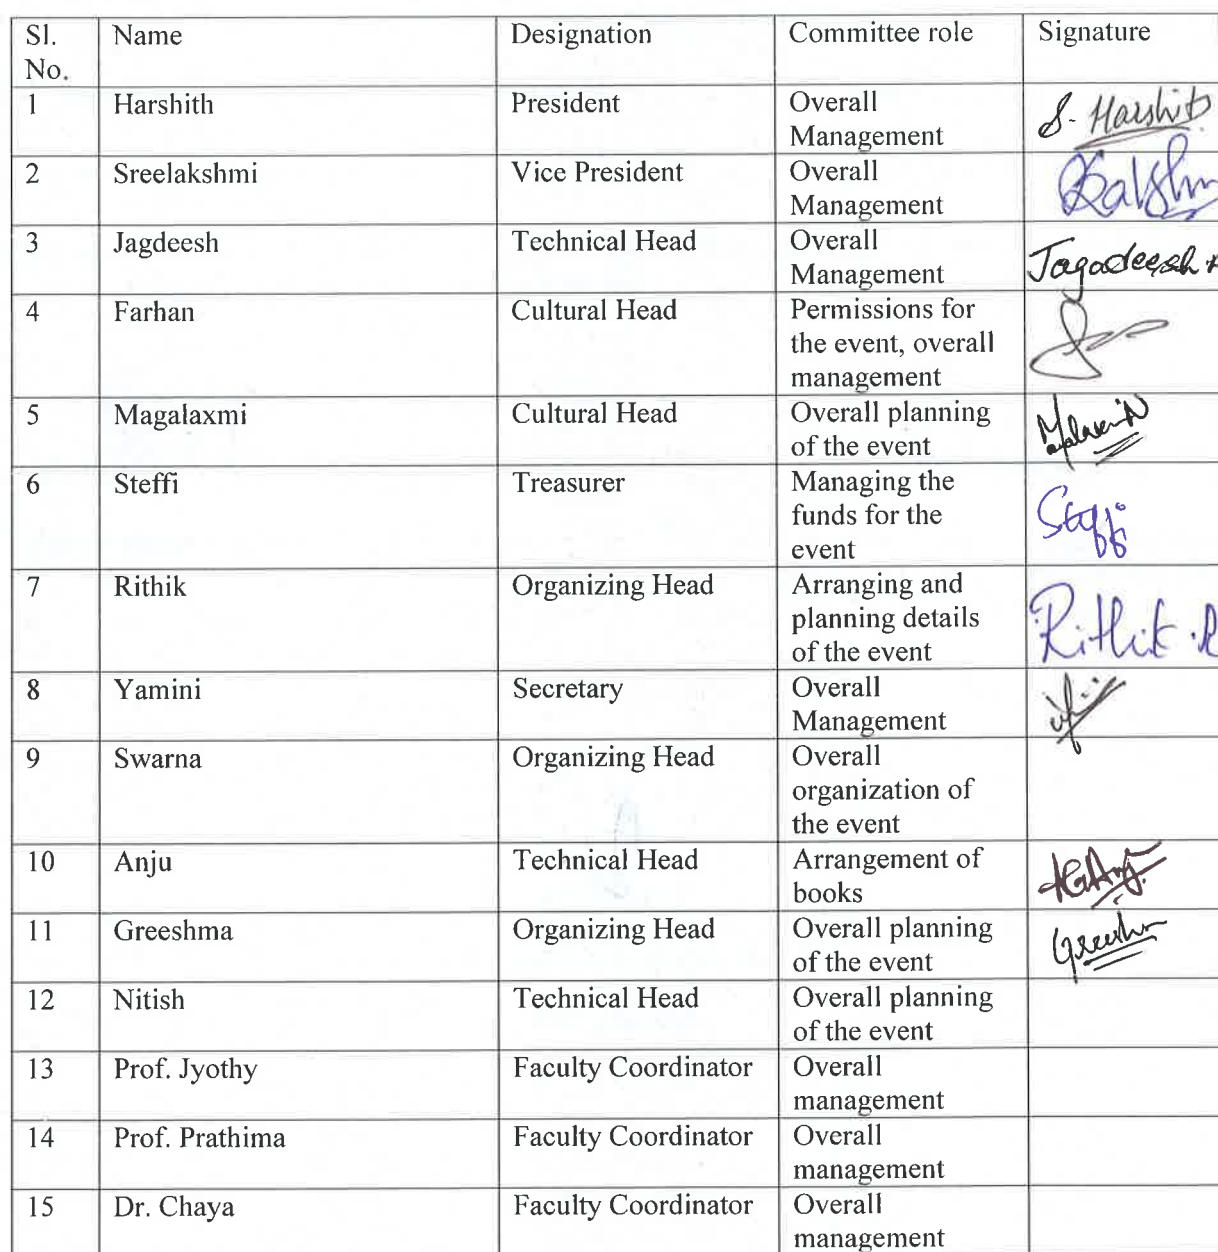 Sl. No. Name Designation Committee role Signature
1 Harshith President Overall Management S. Harshith
2 Sreelakshmi Vice President Overall Management
3 Jagdeesh Technical Head Overall Management Jagadeesh
4 Farhan Cultural Head Permissions for the event, overall management
5 Magalaxmi Cultural Head Overall planning of the event
6 Steffi Treasurer Managing the funds for the event Steffi
7 Rithik Organizing Head Arranging and planning details of the event Rithik .R
8 Yamini Secretary Overall Management
9 Swarna Organizing Head Overall organization of the event
10 Anju Technical Head Arrangement of books
11 Greeshma Organizing Head Overall planning of the event Greeshma
12 Nitish Technical Head Overall planning of the event
13 Prof. Jyothy Faculty Coordinator Overall management
14 Prof. Prathima Faculty Coordinator Overall management
15 Dr. Chaya Faculty Coordinator Overall management